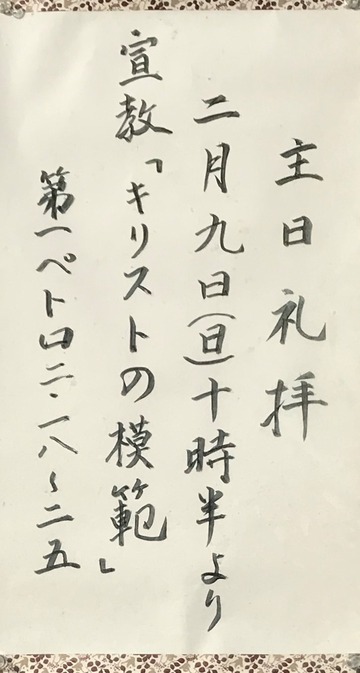 主日礼拝
二月九日(日)十時半より
宣教「キリストの模範」
第一ペトロ二・一八〜二五